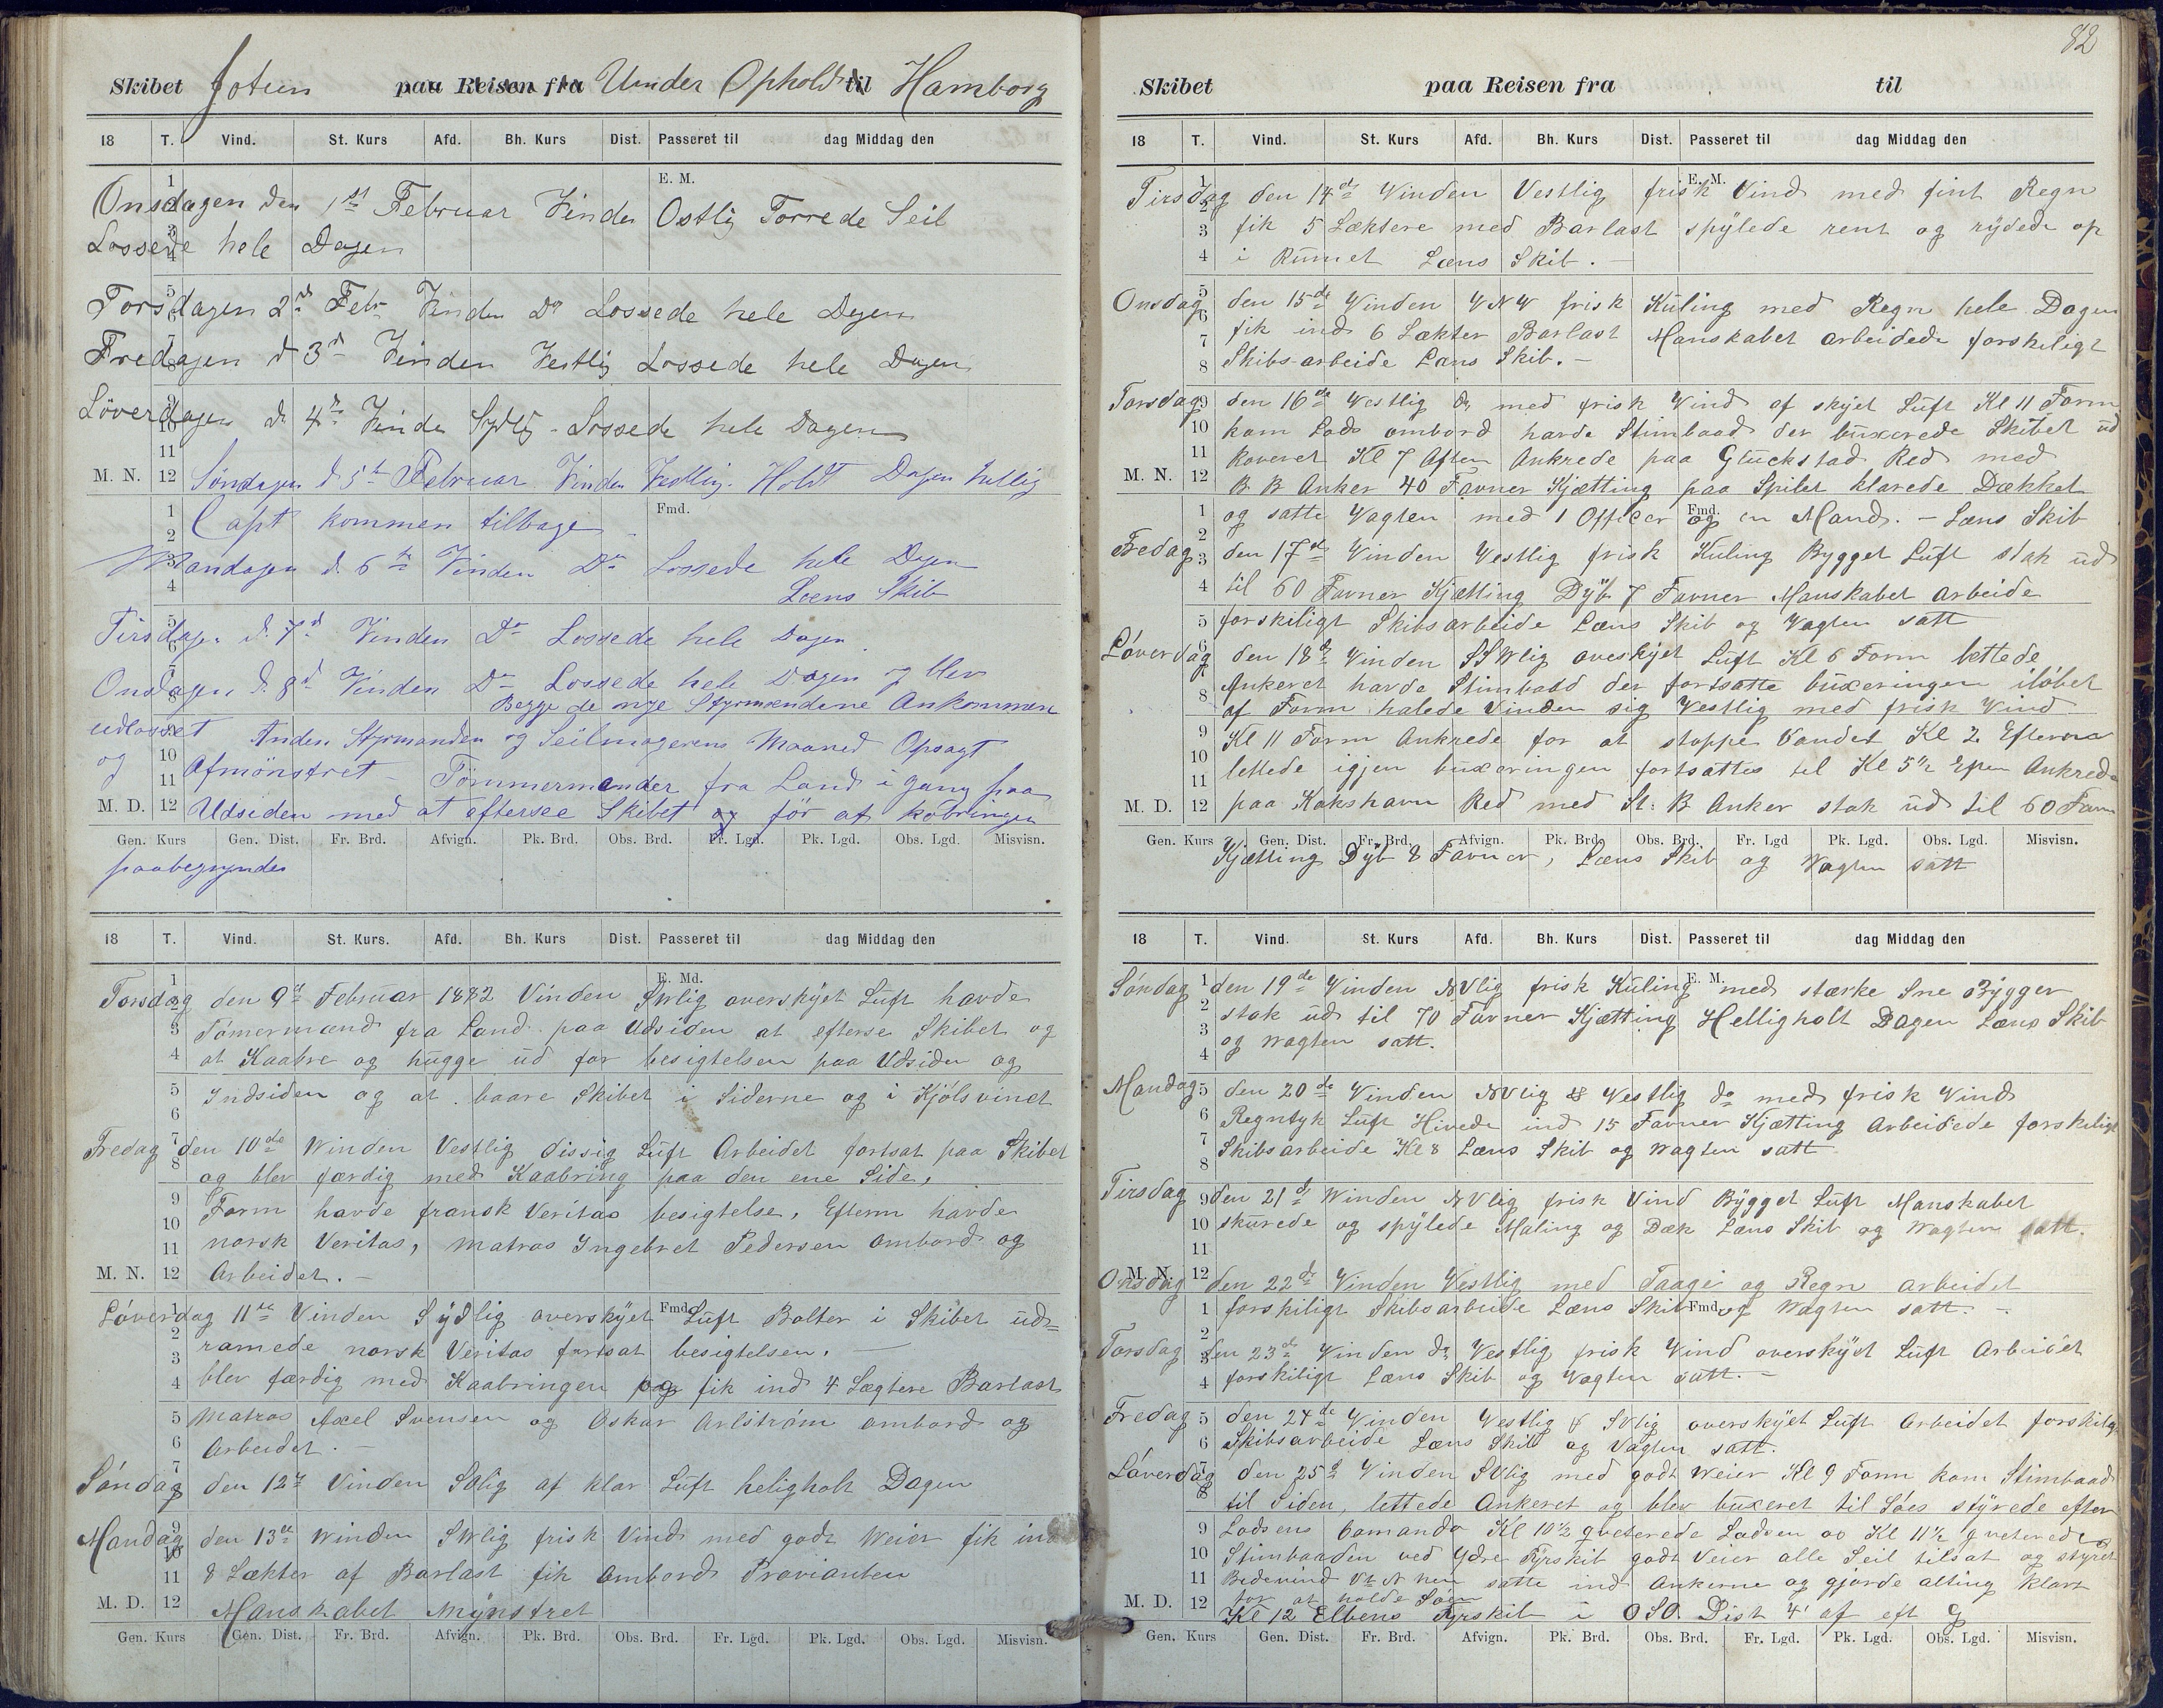 Skibet Jotun paa Reisen fra Under Ophold til Hamborg
18 T. Vind. St. Kurs Afd. Bh. Kurs Dist. Passeret til dag Middag den
E. M.
Onsdagen den 1st Februar Vinden Ostlig Torrede Seil
Lossede hele Dagen
Torsdagen 2d Febr Vinden Do Lossede hele Dagen
Fredagen d 3d Vinden Vestlig Lossede hele Dagen
Löverdagen d. 4de Vinden Sydlig - Lossede hele Dagen
M. N. 12 Söndagen d 5te Februar Vinden Vestlig. Holdt Dagen hellig
Fmd.
Capt kommen tilbage
Mandagen d. 6te Vinden Do Lossede hele Dagen
Læns Skib
Tirsdagen d. 7d Vinden Do Lossede hele Dagen
Onsdagen d. 8d Vinden Do Lossede hele Dagen og blev
Begge de nye Styrmændene Ankommen
udlosset Anden Styrmanden og Seilmagerens Maaned Opsagt
og Afmönstret - Tömmermænder fra Land i gang paa
M. D. 12 Udsiden med at efterse Skibet og för at kobringen
Gen. Kurs Gen. Dist. Fr. Brd. Afvign. Pk. Brd. Obs. Brd. Fr. Lgd. Pk. Lgd. Obs. Lgd. Misvisn.
paabegyndes
18 T. Vind. St. Kurs. Afd. Bh. Kurs Dist. Passeret til dag Middag den
E. Md.
Torsdag den 9de Februar 1882 Vinden SWlig overskyet Luft havde
Tömermænd fra Land paa Udsiden at efterse Skibet og
at Kaabre og hugge ud for besigtelsen paa Udsiden og
Indsiden og at baare Skibet i Siderne og i Kjölsvinet
Fredag den 10de Winden Vestlig dissig Luft Arbeidet fortsat paa Skibet
og blev færdig med Kaabring paa den ene Side,
Form havde fransk Veritas besigtelse, Efterm havde
norsk Veritas, Matros Ingebret Pedersen ombord og
M. N. 12 Arbeidet. -
Fmd.
Löverdag 11te Vinden Sydlig overskyet Luft Bolter i Skibet ud=
ramede norsk Veritas fortsat besigtelsen.
blev færdig med Kaabringen og fik ind 4 Lægtere Barlast
Matros Axel Svensen og Oskar Arlström ombord og
Arbeidet. -
Söndag den 12te Vinden SVlig af klar Luft heligholt Dagen
Mandag den 13de Winden SWlig frisk Vind med godt Weier fik ind
8 Lækter af Barlast fik Ombord Provianten
M. D. 12 Manskabet Mynstret
Gen. Kurs Gen. Dist. Fr. Brd. Afvign. Pk. Brd. Obs. Brd. Fr. Lgd. Pk. Lgd. Obs. Lgd. Misvisn.
82
Skibet paa Reisen fra til
18 T. Vind. St. Kurs Afd. Bh. Kurs Dist. Passeret til dag Middag den
E. M.
Tirsdag den 14de Winden Vestlig frisk Vind med fint Regn
fik 5 Læktere med Barlast spylede rent og rydede op
i Rummet Læns Skib. -
Onsdag den 15de Winden VNV frisk Kuling med Regn hele Dagen
fik ind 6 Lækter Barlast Manskabet arbeidede forskeligt
Skibs-arbeide Læns Skib. -
Torsdag den 16de Vestlig do med frisk Wind af skyet Luft Kl 11 Form
kom Lods ombord havde Stimbaad der buxerede Skibet ud
Kl 7 Aften Ankrede paa Gluckstad Red med
M. N. 12 B B Anker 40 Favner Kjætting paa Spilet klarede Dækket
Fmd.
og satte Vagten med 1 Officer og en Mand. - Læns Skib
Fredag den 17de Winden Vestlig frisk Kuling Bygget Luft stak ud
til 60 Favner Kjætting Dyb 7 Favner Manskabet Arbeide
forskiligt Skibsarbeide Læns Skib og Vagten satt
Löverdag den 18de Vinden SSWlig oveskyet Luft Kl 6 Form lettede
Ankeret havde Stimbaad der fortsatte buxeringen ilöbet
af Form halede Vinden sig Vestlig med frisk Wind
Kl 11 Form Ankrede for at stoppe Vandet Kl 2 Efterm
lettede igjen buxeringen fortsattes til Kl 5½ Efter Ankrede
M. D. 12 paa Kokshavn Red med St: B Anker stak ud til 60 Favn
Gen. Kurs Gen. Dist. Fr. Brd. Afvign. Pk. Brd. Obs. Brd. Fr. Lgd Pk. Lgd. Obs. Lgd. Misvisn.
Kjætting Dyb 8 Favner, Læns Skib og Vagten satt
18 T. Vind. St. Kurs Afd. Bh. Kurs Dist. Passeret til dag Middag den
E. M.
Söndag den 19de Winden NVlig frisk Kuling med stærke Sne Bygger
stak ud til 70 Favner Kjætting Helligholt Dagen Læns Skib
og Wagten satt.
Mandag den 20de Winden NVlig & Vestlig do med frisk Wind
Regntyk Luft Hivede ind 15 Favner Kjætting Arbeidede forskeligt
Skibsarbeide Kl 8 Læns Skib og Wagten satt
Tirsdag den 21de Winden NVlig frisk Vind Bygget Luft Manskabet
skurede og spylede Maling og Dæk Læns Skib og Wagten satt.
M. N. 12
Onsdag den 22de Vinden Vestlig med Taage og Regn arbeidet
Fmd.
forskiligt Skibsarbeide Læns Skib og Wagten satt. -
Torsdag den 23de Vinden do Vestlig frisk Wind overskyet Luft Arbeidet
forskiligt Læns Skib og Vagten satt. -
Fredag den 24de Winden Vestlig & SVlig overskyet Luft Arbeidet forskiligt
Skibsarbeide Læns Skib og Vagten satt.
Löverdag den 25de Vinden SVlig med godt Weier Kl 9 Form kom Stimbaad
til Siden, lettede Ankeret og blev buxeret til Söes styrede efter
Lodsens Comando Kl 10½ qveterede Lodsen og Kl 11½ qveterede
Stimbaaden ved Ydre Fyrskib godt Veier alle Seil tilsat og styret
Bidevind satte ind Ankerne og gjorde alting klart
for at holde Söen
M. D. 12 Kl 12 Elbens Fyrskib i OSO Dist 4' af
Gen. Kurs Gen. Dist. Fr. Brd. Afvign. Pk. Brd. Obs. Brd. Fr. Lgd. Pk. Lgd. Obs. Lgd. Misvisn.